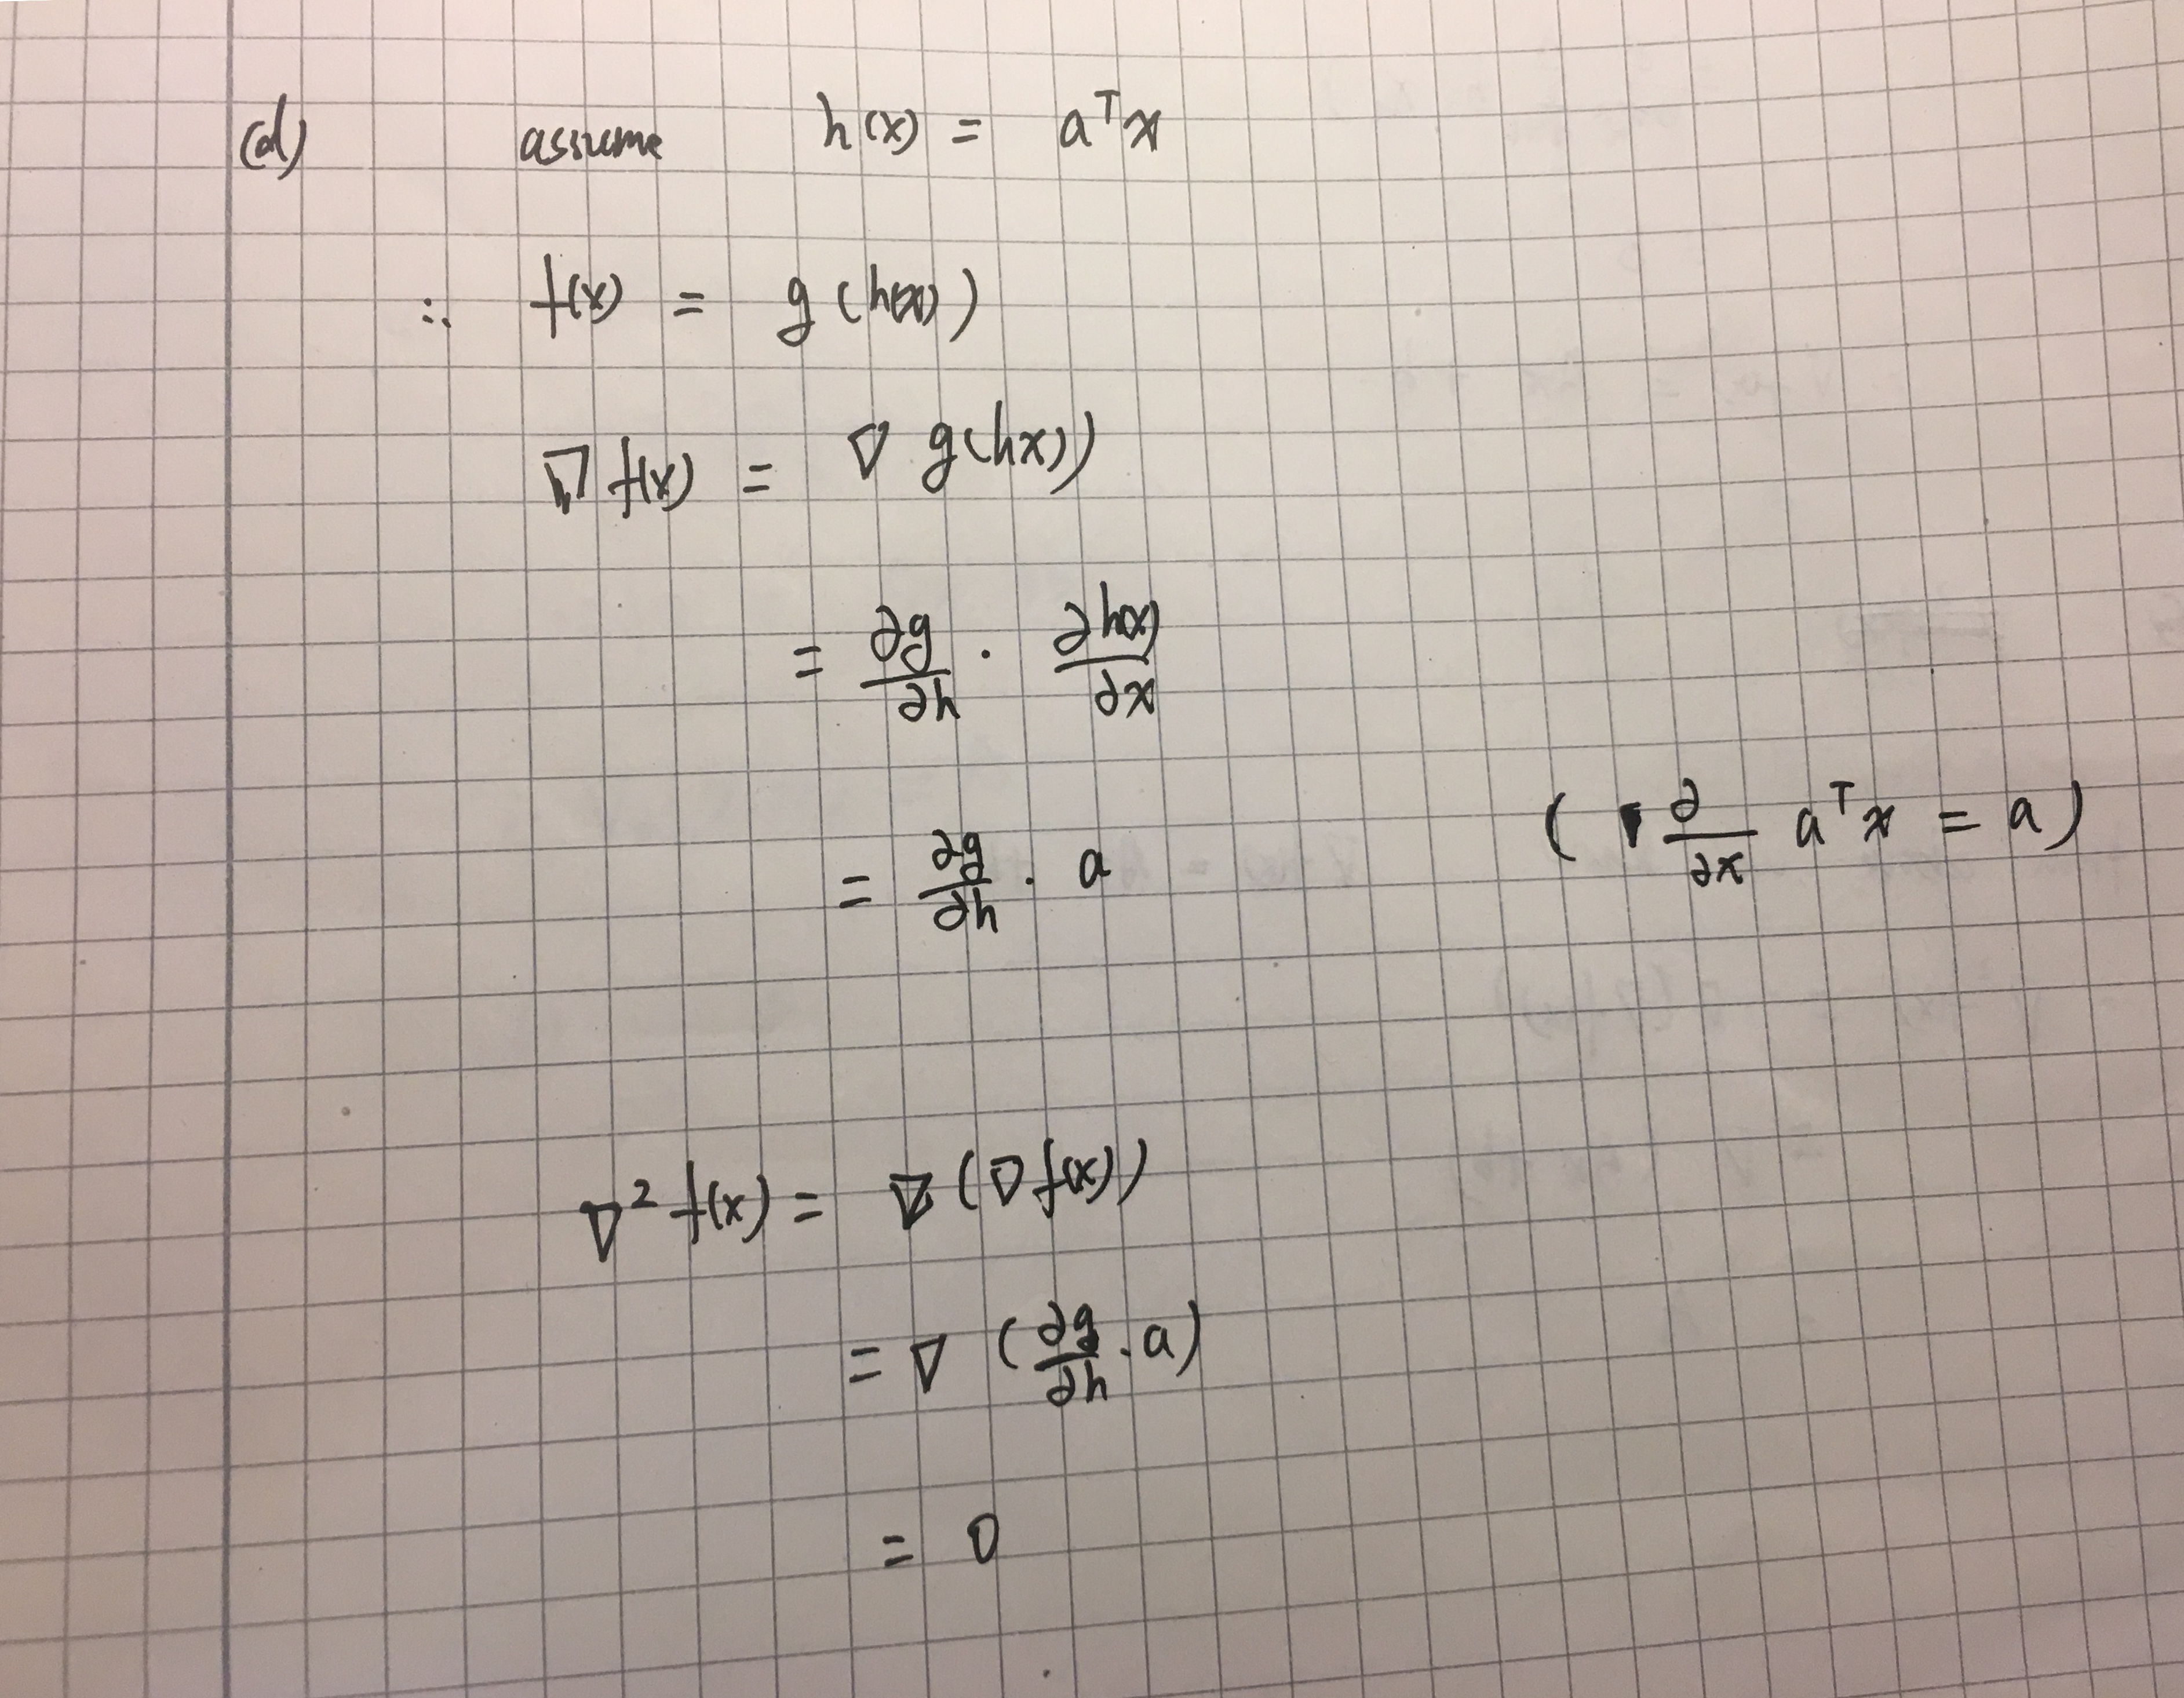 (d) assume h(x) = aᵀx
∴ f(x) = g(h(x))
∇f(x) = ∇ g(h(x))
= ∂g/∂h · ∂h(x)/∂x
= ∂g/∂h · a (∂/∂x aᵀx = a)
∇²f(x) = ∇(∇f(x))
= ∇(∂g/∂h · a)
= 0